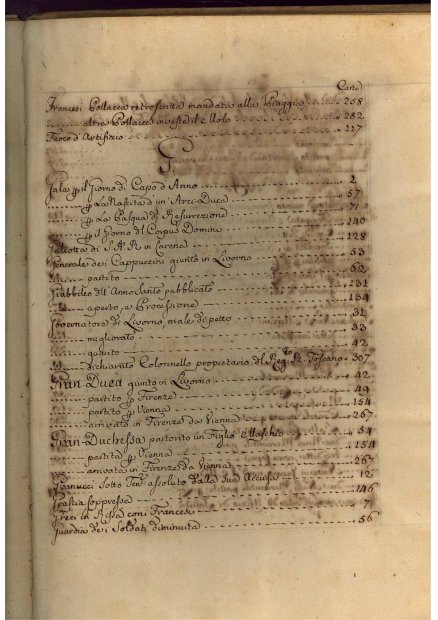 Carte
Francesi Pollacca retrosentta mandata alla Spiaggia 258
altra Pollacca investe il Molo 282
Fuoco d'Artifizio 227
G
Gala per il Giorno di Capo d'Anno 2
per La Nascita d'un Arci-Duca 57
per La Pasqua di Resurrezione 71
per il Giorno del Corpus Domini 140
Galeotta di S.A.R. in Carena 128
Generale dei Cappuccini giunto in Livorno 53
partito 62
Giubbileo dell'Anno Santo pubblicato 131
aperto, e Processione 134
Governatore di Livorno, male di petto 31
migliorato 33
guarito 42
dichiarato Colonnello propietario del Regto. Rl. Toscano 307
Gran Duca giunto in Livorno 42
partito per Firenze 49
partito per Vienna 154
arrivato in Firenze da Vienna 267
Gran Duchessa partorito un Figlio Maschio 54
partita per Vienna 154
arrivata in Firenze da Vienna 267
Sotto Tente. assoluto dalla sua Accusa 12
soppressa 146
Greci in Rissa con i Francesi 7
Guardia dei Soldati diminuita 56